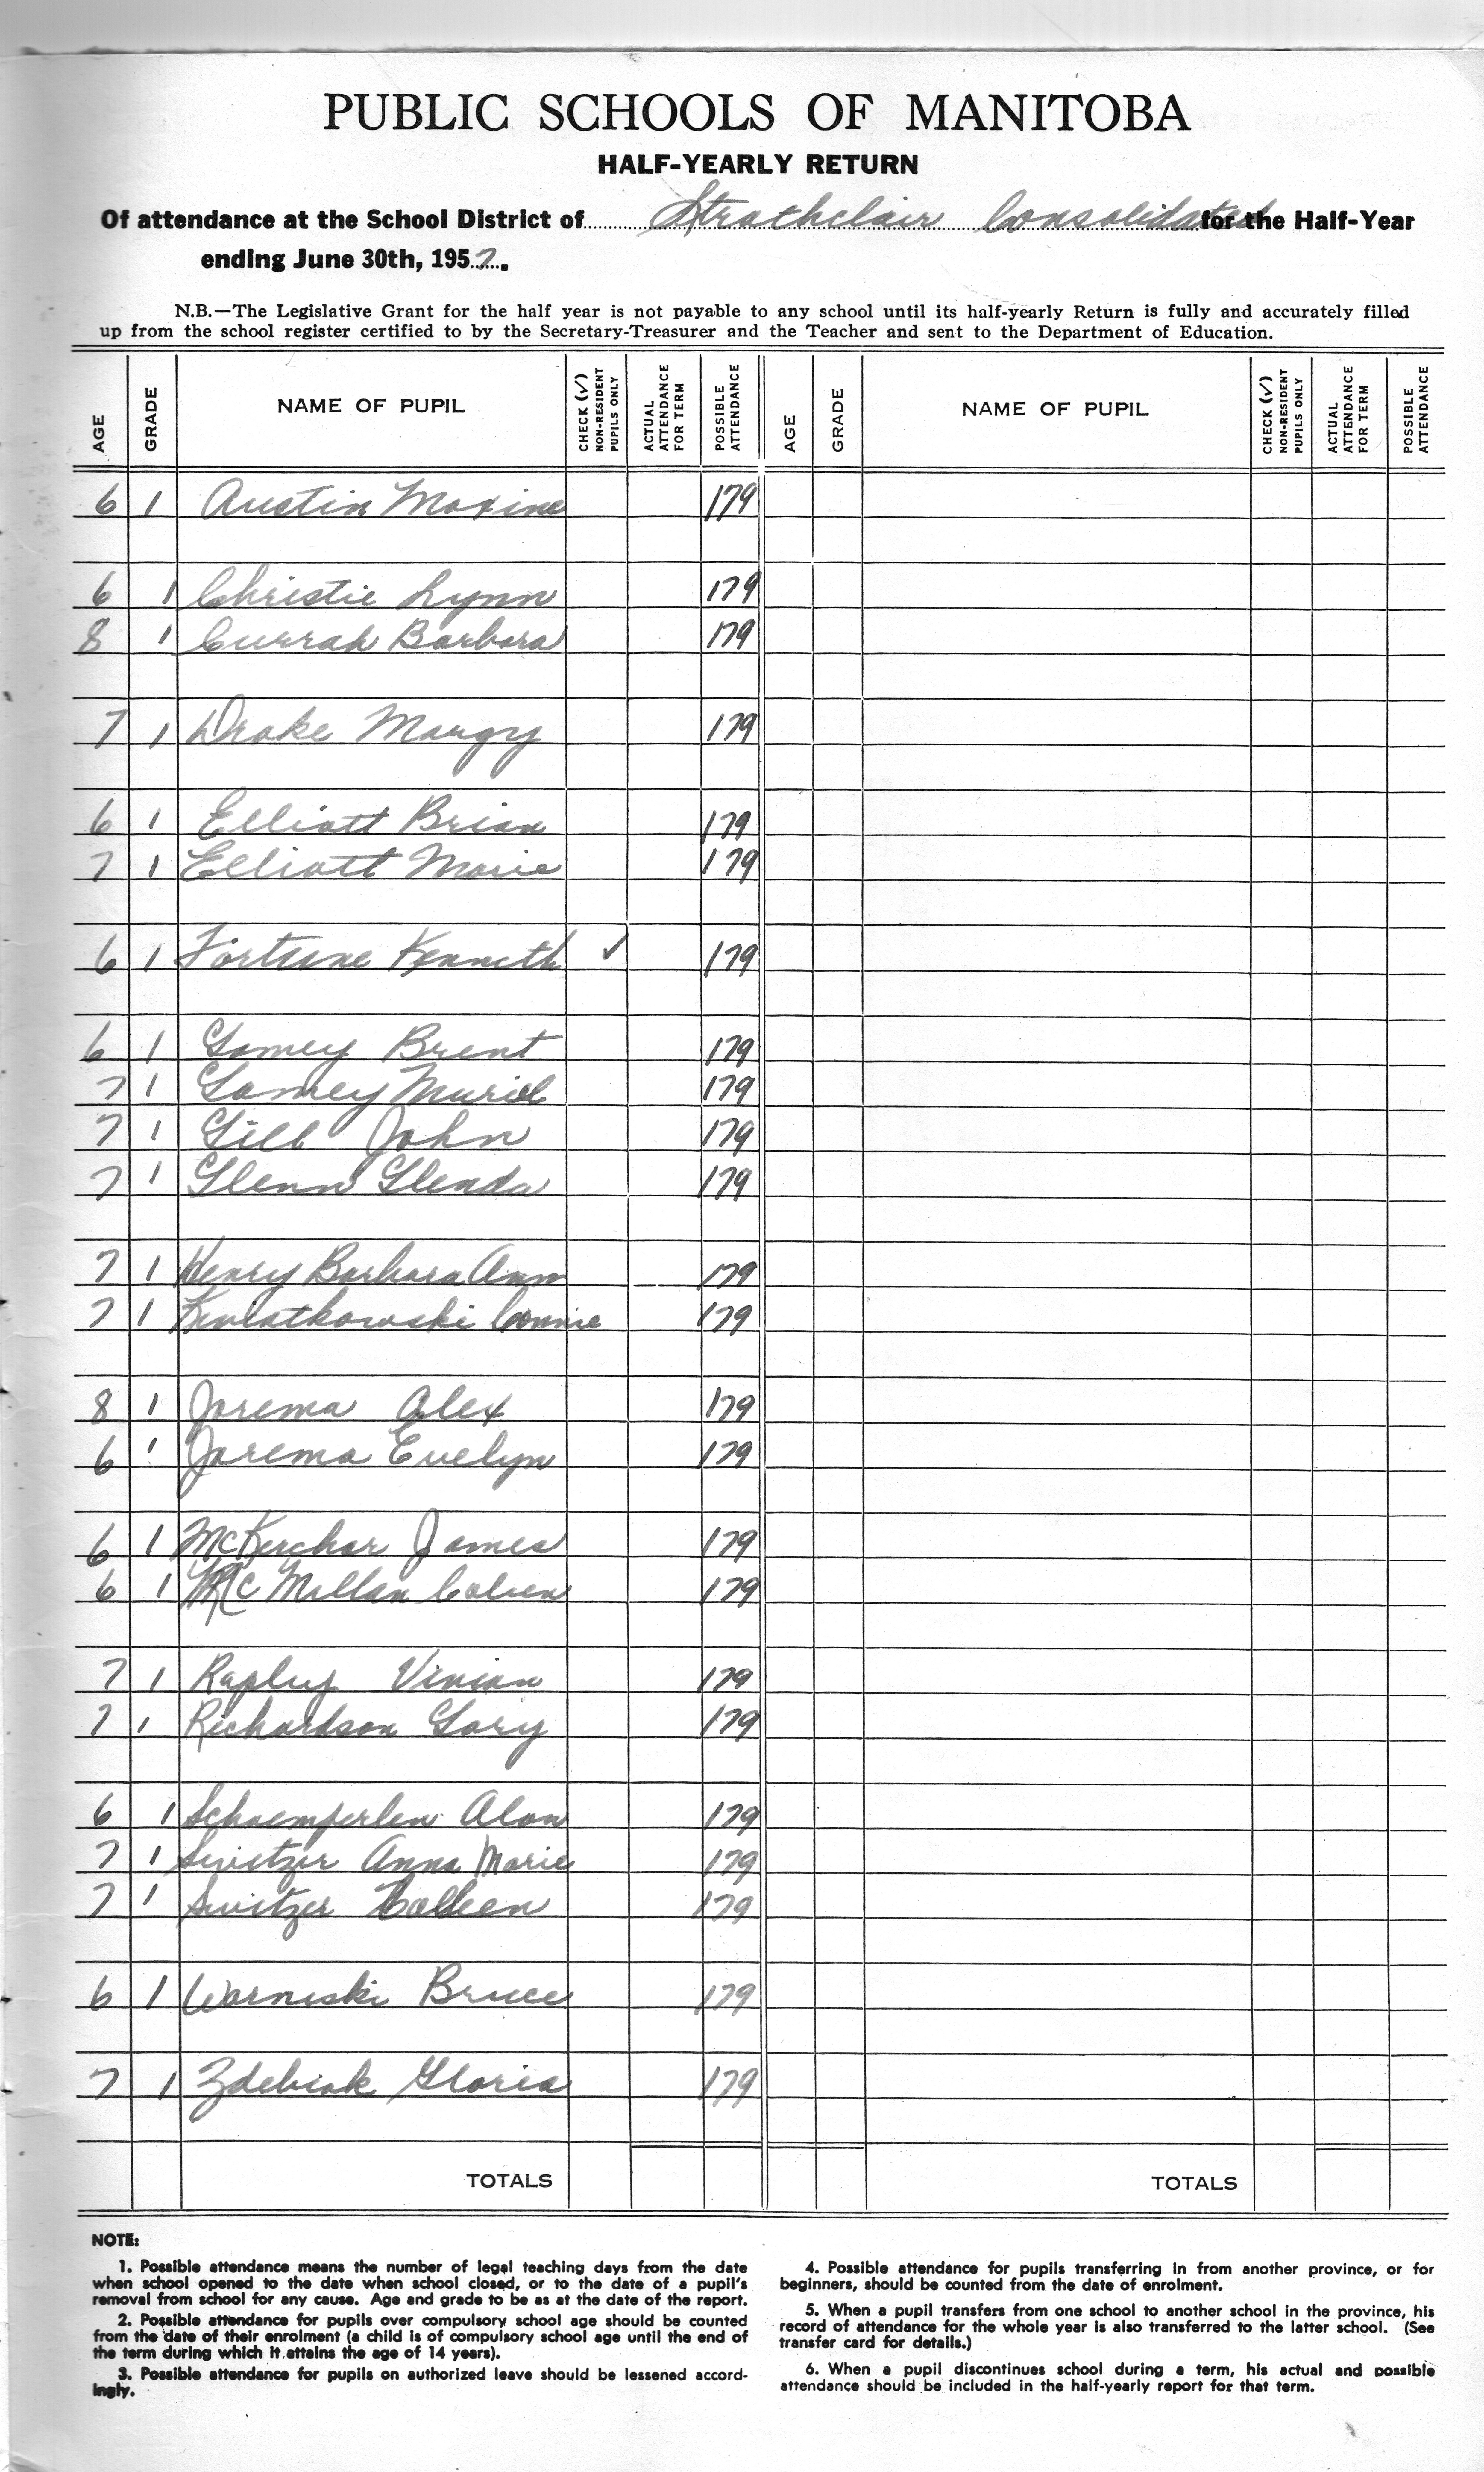 PUBLIC SCHOOLS OF MANITOBA
HALF-YEARLY RETURN
Of attendance at the School District of Strathclair Consolidated for the Half-Year
ending June 30th, 1957.
N.B.—The Legislative Grant for the half year is not payable to any school until its half-yearly Return is fully and accurately filled
up from the school register certified to by the Secretary-Treasurer and the Teacher and sent to the Department of Education.
AGE GRADE NAME OF PUPIL CHECK (✓) NON-RESIDENT PUPILS ONLY ACTUAL ATTENDANCE FOR TERM POSSIBLE ATTENDANCE AGE GRADE NAME OF PUPIL CHECK (✓) NON-RESIDENT PUPILS ONLY ACTUAL ATTENDANCE FOR TERM POSSIBLE ATTENDANCE
6 1 Austin Maxine 179
6 1 Christie Lynn 179
8 1 Currah Barbara 179
7 1 Drake Margy 179
6 1 Elliott Brian 179
7 1 Elliott Marie 179
6 1 Fortune Kenneth ✓ 179
6 1 Gamey Brent 179
7 1 Gamey Muriel 179
7 1 Gill John 179
7 1 Glenn Glenda 179
7 1 Henry Barbara Ann 179
7 1 Kwiatkowski Connie 179
8 1 Jarema Alex 179
6 1 Jarema Evelyn 179
6 1 McKerchar James 179
6 1 McMillan 179
7 1 Rapley Vivian 179
7 1 Richardson Gary 179
6 1 Schoemperlen Alan 179
7 1 Switzer Anna Marie 179
7 1 Switzer Colleen 179
6 1 Warniski Bruce 179
7 1 Zdebiak Gloria 179
TOTALS TOTALS
NOTE:
1. Possible attendance means the number of legal teaching days from the date
when school opened to the date when school closed, or to the date of a pupil's
removal from school for any cause. Age and grade to be as at the date of the report.
2. Possible attendance for pupils over compulsory school age should be counted
from the date of their enrolment (a child is of compulsory school age until the end of
the term during which it attains the age of 14 years).
3. Possible attendance for pupils on authorized leave should be lessened accord-
ingly.
4. Possible attendance for pupils transferring in from another province, or for
beginners, should be counted from the date of enrolment.
5. When a pupil transfers from one school to another school in the province, his
record of attendance for the whole year is also transferred to the latter school. (See
transfer card for details.)
6. When a pupil discontinues school during a term, his actual and possible
attendance should be included in the half-yearly report for that term.